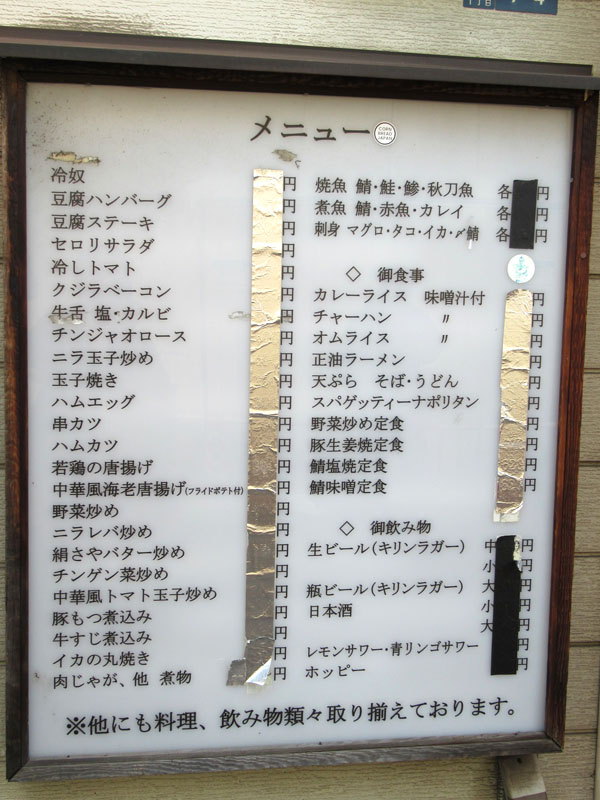 メニュー
CORN BREAD JAPAN
冷奴 円
豆腐ハンバーグ 円
豆腐ステーキ 円
セロリサラダ 円
冷しトマト 円
クジラベーコン 円
牛舌 塩・カルビ 円
チンジャオロース 円
ニラ玉子炒め 円
玉子焼き 円
ハムエッグ 円
串カツ 円
ハムカツ 円
若鶏の唐揚げ 円
中華風海老唐揚げ(フライドポテト付) 円
野菜炒め 円
ニラレバ炒め 円
絹さやバター炒め 円
チンゲン菜炒め 円
中華風トマト玉子炒め 円
豚もつ煮込み 円
牛すじ煮込み 円
イカの丸焼き 円
肉じゃが、他 煮物 円
焼魚 鯖・鮭・鯵・秋刀魚 各 円
煮魚 鯖・赤魚・カレイ 各 円
刺身 マグロ・タコ・イカ・〆鯖 各 円
◇ 御食事
カレーライス 味噌汁付 円
チャーハン 〃 円
オムライス 〃 円
正油ラーメン 円
天ぷら そば・うどん 円
スパゲッティーナポリタン 円
野菜炒め定食 円
豚生姜焼定食 円
鯖塩焼定食 円
鯖味噌定食 円
◇ 御飲み物
生ビール(キリンラガー) 中 円
小 円
瓶ビール(キリンラガー) 大 円
日本酒 小 円
大 円
レモンサワー・青リンゴサワー 円
ホッピー 円
※他にも料理、飲み物類々取り揃えております。